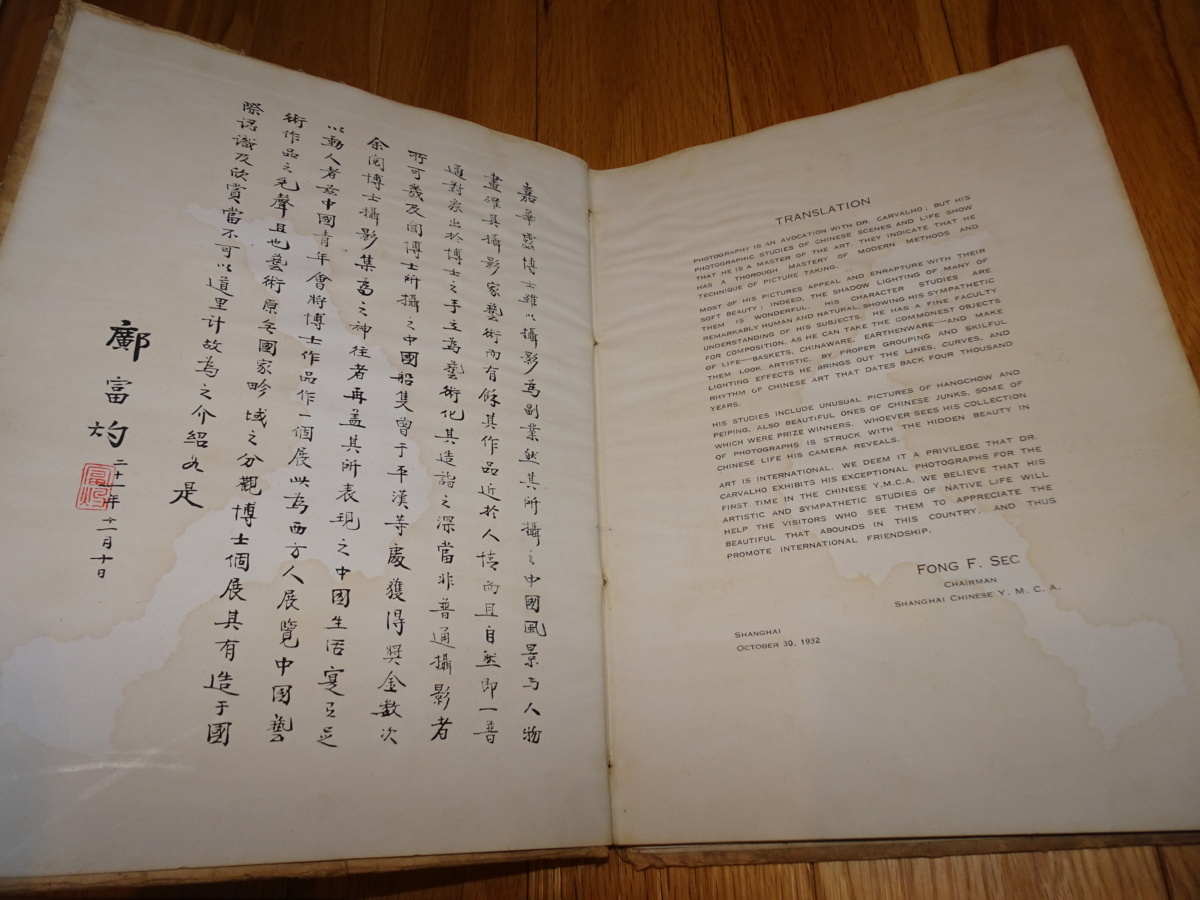 嘉華露博士雖以攝影為副業然其所攝之中國風景与人物
畫確具攝影家藝術而有餘其作品近於人情而且自然即一普
通對象出於博士之手立為藝術化其造詣之深當非普通攝影者
所可幾及聞博士所攝之中國船隻曾于平漢等處獲得獎金數次
余閱博士攝影集為之神往者再蓋其所表現之中國生活寔足
以動人者茲中國青年會將博士作品作一個展此為西方人展覽中國藝
術作品之先聲且也藝術原無國家畛域之分觀博士個展其有造于國
際認識及欣賞當不可以道里計故為之介紹如是
鄺富灼 二十一年十一月十日
TRANSLATION
PHOTOGRAPHY IS AN AVOCATION WITH DR. CARVALHO; BUT HIS
PHOTOGRAPHIC STUDIES OF CHINESE SCENES AND LIFE SHOW
THAT HE IS A MASTER OF THE ART. THEY INDICATE THAT HE
HAS A THOROUGH MASTERY OF MODERN METHODS AND
TECHNIQUE OF PICTURE TAKING.
MOST OF HIS PICTURES APPEAL AND ENRAPTURE WITH THEIR
SOFT BEAUTY; INDEED, THE SHADOW LIGHTING OF MANY OF
THEM IS WONDERFUL. HIS CHARACTER STUDIES ARE
REMARKABLY HUMAN AND NATURAL, SHOWING HIS SYMPATHETIC
UNDERSTANDING OF HIS SUBJECTS. HE HAS A FINE FACULTY
FOR COMPOSITION, AS HE CAN TAKE THE COMMONEST OBJECTS
OF LIFE—BASKETS, CHINAWARE, EARTHENWARE—AND MAKE
THEM LOOK ARTISTIC. BY PROPER GROUPING AND SKILFUL
LIGHTING EFFECTS HE BRINGS OUT THE LINES, CURVES, AND
RHYTHM OF CHINESE ART THAT DATES BACK FOUR THOUSAND
YEARS.
HIS STUDIES INCLUDE UNUSUAL PICTURES OF HANGCHOW AND
PEIPING, ALSO BEAUTIFUL ONES OF CHINESE JUNKS, SOME OF
WHICH WERE PRIZE WINNERS. WHOEVER SEES HIS COLLECTION
OF PHOTOGRAPHS IS STRUCK WITH THE HIDDEN BEAUTY IN
CHINESE LIFE HIS CAMERA REVEALS.
ART IS INTERNATIONAL. WE DEEM IT A PRIVILEGE THAT DR.
CARVALHO EXHIBITS HIS EXCEPTIONAL PHOTOGRAPHS FOR THE
FIRST TIME IN THE CHINESE Y.M.C.A. WE BELIEVE THAT HIS
ARTISTIC AND SYMPATHETIC STUDIES OF NATIVE LIFE WILL
HELP THE VISITORS WHO SEE THEM TO APPRECIATE THE
BEAUTIFUL THAT ABOUNDS IN THIS COUNTRY, AND THUS
PROMOTE INTERNATIONAL FRIENDSHIP.
FONG F. SEC
CHAIRMAN
SHANGHAI CHINESE Y. M. C. A.
SHANGHAI
OCTOBER 30, 1932